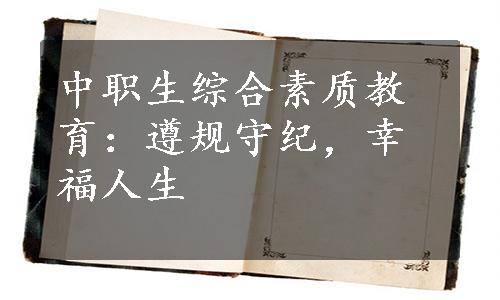 中职生综合素质教
育：遵规守纪，幸
福人生